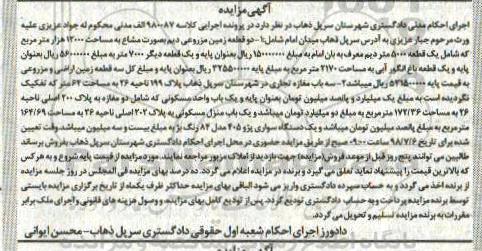 آگهی مزایده
اجرای احکام مدنی دادگستری شهرستان سرپل ذهاب در نظر دارد در پرونده اجرایی کلاسه ۹۸۰۰۸۷ الف مدنی محکوم له جواد عزیزی علیه
ورث مرحوم جبار عزیزی به آدرس سرپل ذهاب میدان امام شامل:۱-دو قطعه زمین مزروعی دیم بصورت مشاع به مساحت ۱۲۰۰۰ هزار متر مربع
که شامل یک قطعه ۵۰۰۰ متر دیم معرف به بان امام به مبلغ ۱۵۰۰۰۰۰۰۰ ریال بعنوان پایه و یک قطعه دیگر ۷۰۰۰ متر به مبلغ ۵۶۰۰۰۰۰۰ ریال بعنوان
پایه و یک قطعه باغ انگور آبی به مساحت ۲۱۷۰ متر مربع به مبلغ پایه ۳۲۵۵۰۰۰۰۰ ریال بعنوان پایه و مبلغ کل سه قطعه زمین اراضی و مزروعی
به قیمت پایه ۵۳۱۵۰۰۰۰۰ ریال میباشد۲- سه باب مغازه تجاری در شهرستان سرپل ذهاب پلاک ۱۹۹ ناحیه ۲۶ به مساحت ۶۲ متر که تفکیک
نگردیده است به مبلغ یک میلیارد و پانصد میلیون تومان بعنوان پایه و یک باب واحد مسکونی که شامل دو مغازه به پلاک ۲۰۰ اصلی ناحیه
۲۶ به مساحت ۱۷۲/۳۶ متر مربع به مبلغ دو میلیارد تومان میباشد و یک باب منزل مسکونی به پلاک ۲۰۲ اصلی ناحیه ۲۶ به مساحت ۱۶۲/۶۹
متر مربع به مبلغ پانصد میلیون تومان میباشد و یک دستگاه سواری پژو ۴۰۵ مدل ۸۴ رنگ بژ به مبلغ بیست و سه میلیون میباشد.وقت تعیین
شده برای تاریخ ۹۸/۷/۶ صبح ۰۹:۰۰ از طریق مزایده حضوری در محل اجرای احکام دادگستری شهرستان سرپل ذهاب بفروش برساند
طالبین می توانند پنج روز قبل از موعد فروش(مزایده) جهت بازدید از املاک مزبور مراجعه نمایند. مورد مزایده از قیمت پایه شروع و به هر کس
که بالاترین قیمت را پیشنهاد نماید تعلق می گیرد و برنده در مزایده اعلام می گردد. ده درصد بهای مزایده فی المجلس در روز جلسه مزایده
از برنده اخذ می گردد و به حساب سپرده دادگستری واریز می شود الباقی بهای مزایده حداکثر ظرف یکماه از تاریخ برگزاری مزایده بایستی
توسط برنده مزایده پرداخت و به حساب دادگستری تودیع گردد. پس از تودیع کامل بهای مزایده، و وصول هزینه های قانونی و اجرای ملک برابر
مقررات به برنده مزایده تسلیم و تحویل می گردد.
دادورز اجرای احکام شعبه اول حقوقی دادگستری سرپل ذهاب- محسن ایوانی